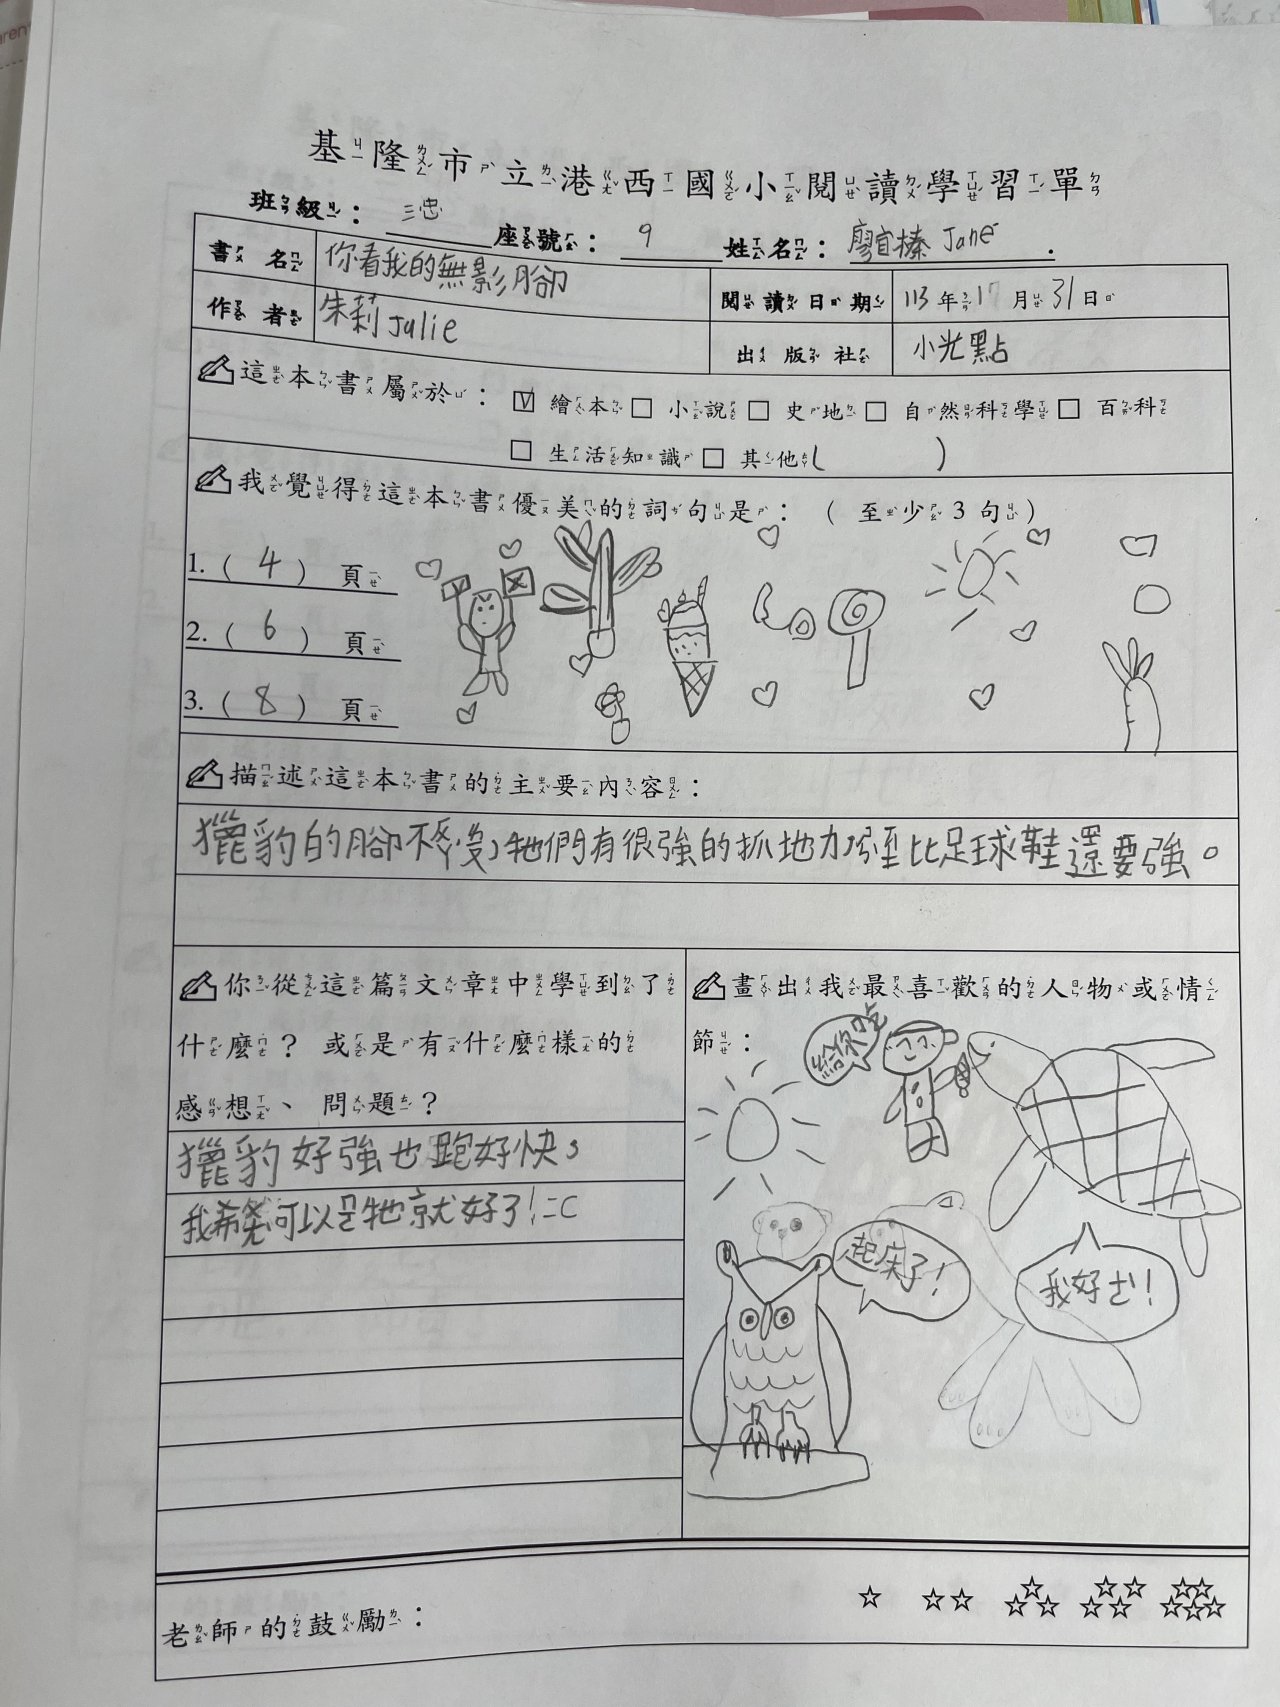 基隆市立港西國小閱讀學習單
班級： 三忠 座號： 9 姓名： 廖宜榛 Jane .
書名 你看我的無影腳
作者 朱莉 Julie
閱讀日期 113 年 17 月 31 日
出版社 小光點
這本書屬於： ☑ 繪本 □ 小說 □ 史地 □ 自然科學 □ 百科
□ 生活知識 □ 其他( )
我覺得這本書優美的詞句是：（至少 3 句）
1.（ 4 ） 頁
2.（ 6 ） 頁
3.（ 8 ） 頁
描述這本書的主要內容：
獵豹的腳不 牠們有很強的抓地力 比足球鞋還要強。
你從這篇文章中學到了
什麼？ 或是有什麼樣的
感想、 問題？
獵豹好強也跑好快，
我希 可以是牠就好了!=C
畫出我最喜歡的人物或情
節：
給你吃
起床了!
我好ㄜ!
老師的鼓勵： ☆ ☆☆ ☆☆☆ ☆☆☆☆ ☆☆☆☆☆